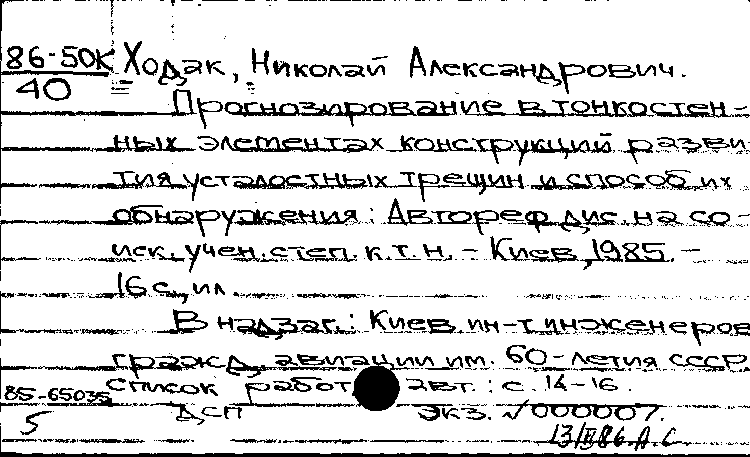 86-50К Ходак, Николай Александрович.
40
Прогнозирование в тонкостен-
ных элементах конструкций разви
тия усталостных трещин и способ их
обнаружения: Автореф. дис. на со-
иск. учен. степ. к.т.н. – Киев, 1985. –
16 с., ил
В надзаг.: Киев. ин-т инженеров
гражд. авиации им. 60-летия СССР.
85-65035 Список работ авт.: с. 14-16.
5 ДСП экз. √000007.
86. А.С